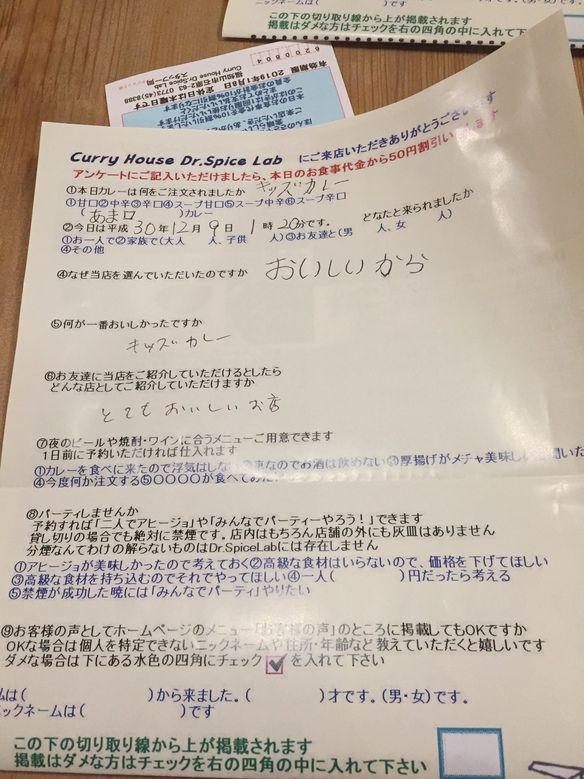 この下の切り取り線から上が掲載されます
掲載はダメな方はチェックを右の四角の中に入れて下
Curry House Dr.Spice Lab
スタッフ一同
有効期限 2019年1月8日
Curry House Dr.Spice Lab にご来店いただきありがとうございます
アンケートにご記入いただけましたら、本日のお食事代金から50円割引いたします
①本日カレーは何をご注文されましたか キッズカレー
①甘口②中辛③辛口④スープ甘口⑤スープ中辛⑥スープ辛口
(あま口 )カレー
②今日は平成30年12月9日 1時20分です。 どなたと来られましたか
①お一人で②家族で(大人 人、子供 人)③お友達と(男 人、女 人)
④その他
④なぜ当店を選んでいただいたのですか おいしいから
⑤何が一番おいしかったですか
キッズカレー
⑥お友達に当店をご紹介していただけるとしたら
どんな店としてご紹介していただけますか
とてもおいしいお店
⑦夜のビールや焼酎・ワインに合うメニューご用意できます
1日前に予約いただければ仕入れます
①カレーを食べに来たので浮気はしない②車なのでお酒は飲めない③厚揚げがメチャ美味しいと聞いた
④今度何か注文する⑤〇〇〇〇が食べてみた
⑧パーティしませんか
予約すれば「二人でアヒージョ」や「みんなでパーティーやろう!」できます
貸し切りの場合でも絶対に禁煙です。店内はもちろん店舗の外にも灰皿はありません
分煙なんてわけの解らないものはDr.SpiceLabには存在しません
①アヒージョが美味しかったので考えておく②高級な食材はいらないので、価格を下げてほしい
③高級な食材を持ち込むのでそれでやってほしい④一人( )円だったら考える
⑤禁煙が成功した暁には「みんなでパーティ」やりたい
⑨お客様の声としてホームページのメニュー「お客様の声」のところに掲載してもOKですか
OKな場合は個人を特定できないニックネームや住所・年齢など教えていただくと嬉しいです
ダメな場合は下にある水色の四角にチェック☑を入れて下さい
私は( )から来ました。( )才です。(男・女)です。
ニックネームは( )です
この下の切り取り線から上が掲載されます
掲載はダメな方はチェックを右の四角の中に入れて下さい